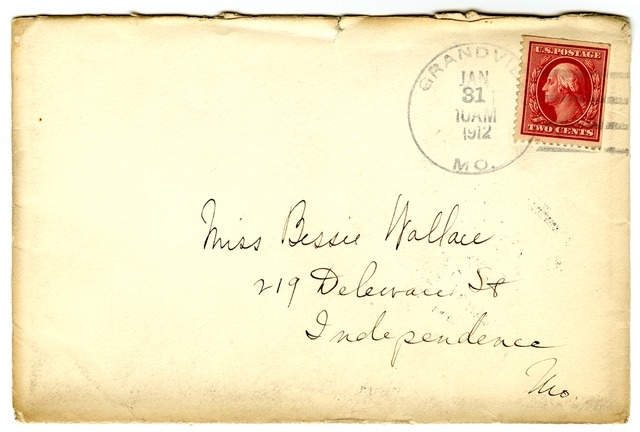 GRANDVI
JAN
31
10AM
1912
MO.
U.S. POSTAGE
TWO CENTS
Miss Bessie Wallace
219 Deleware St
Independence
Mo.